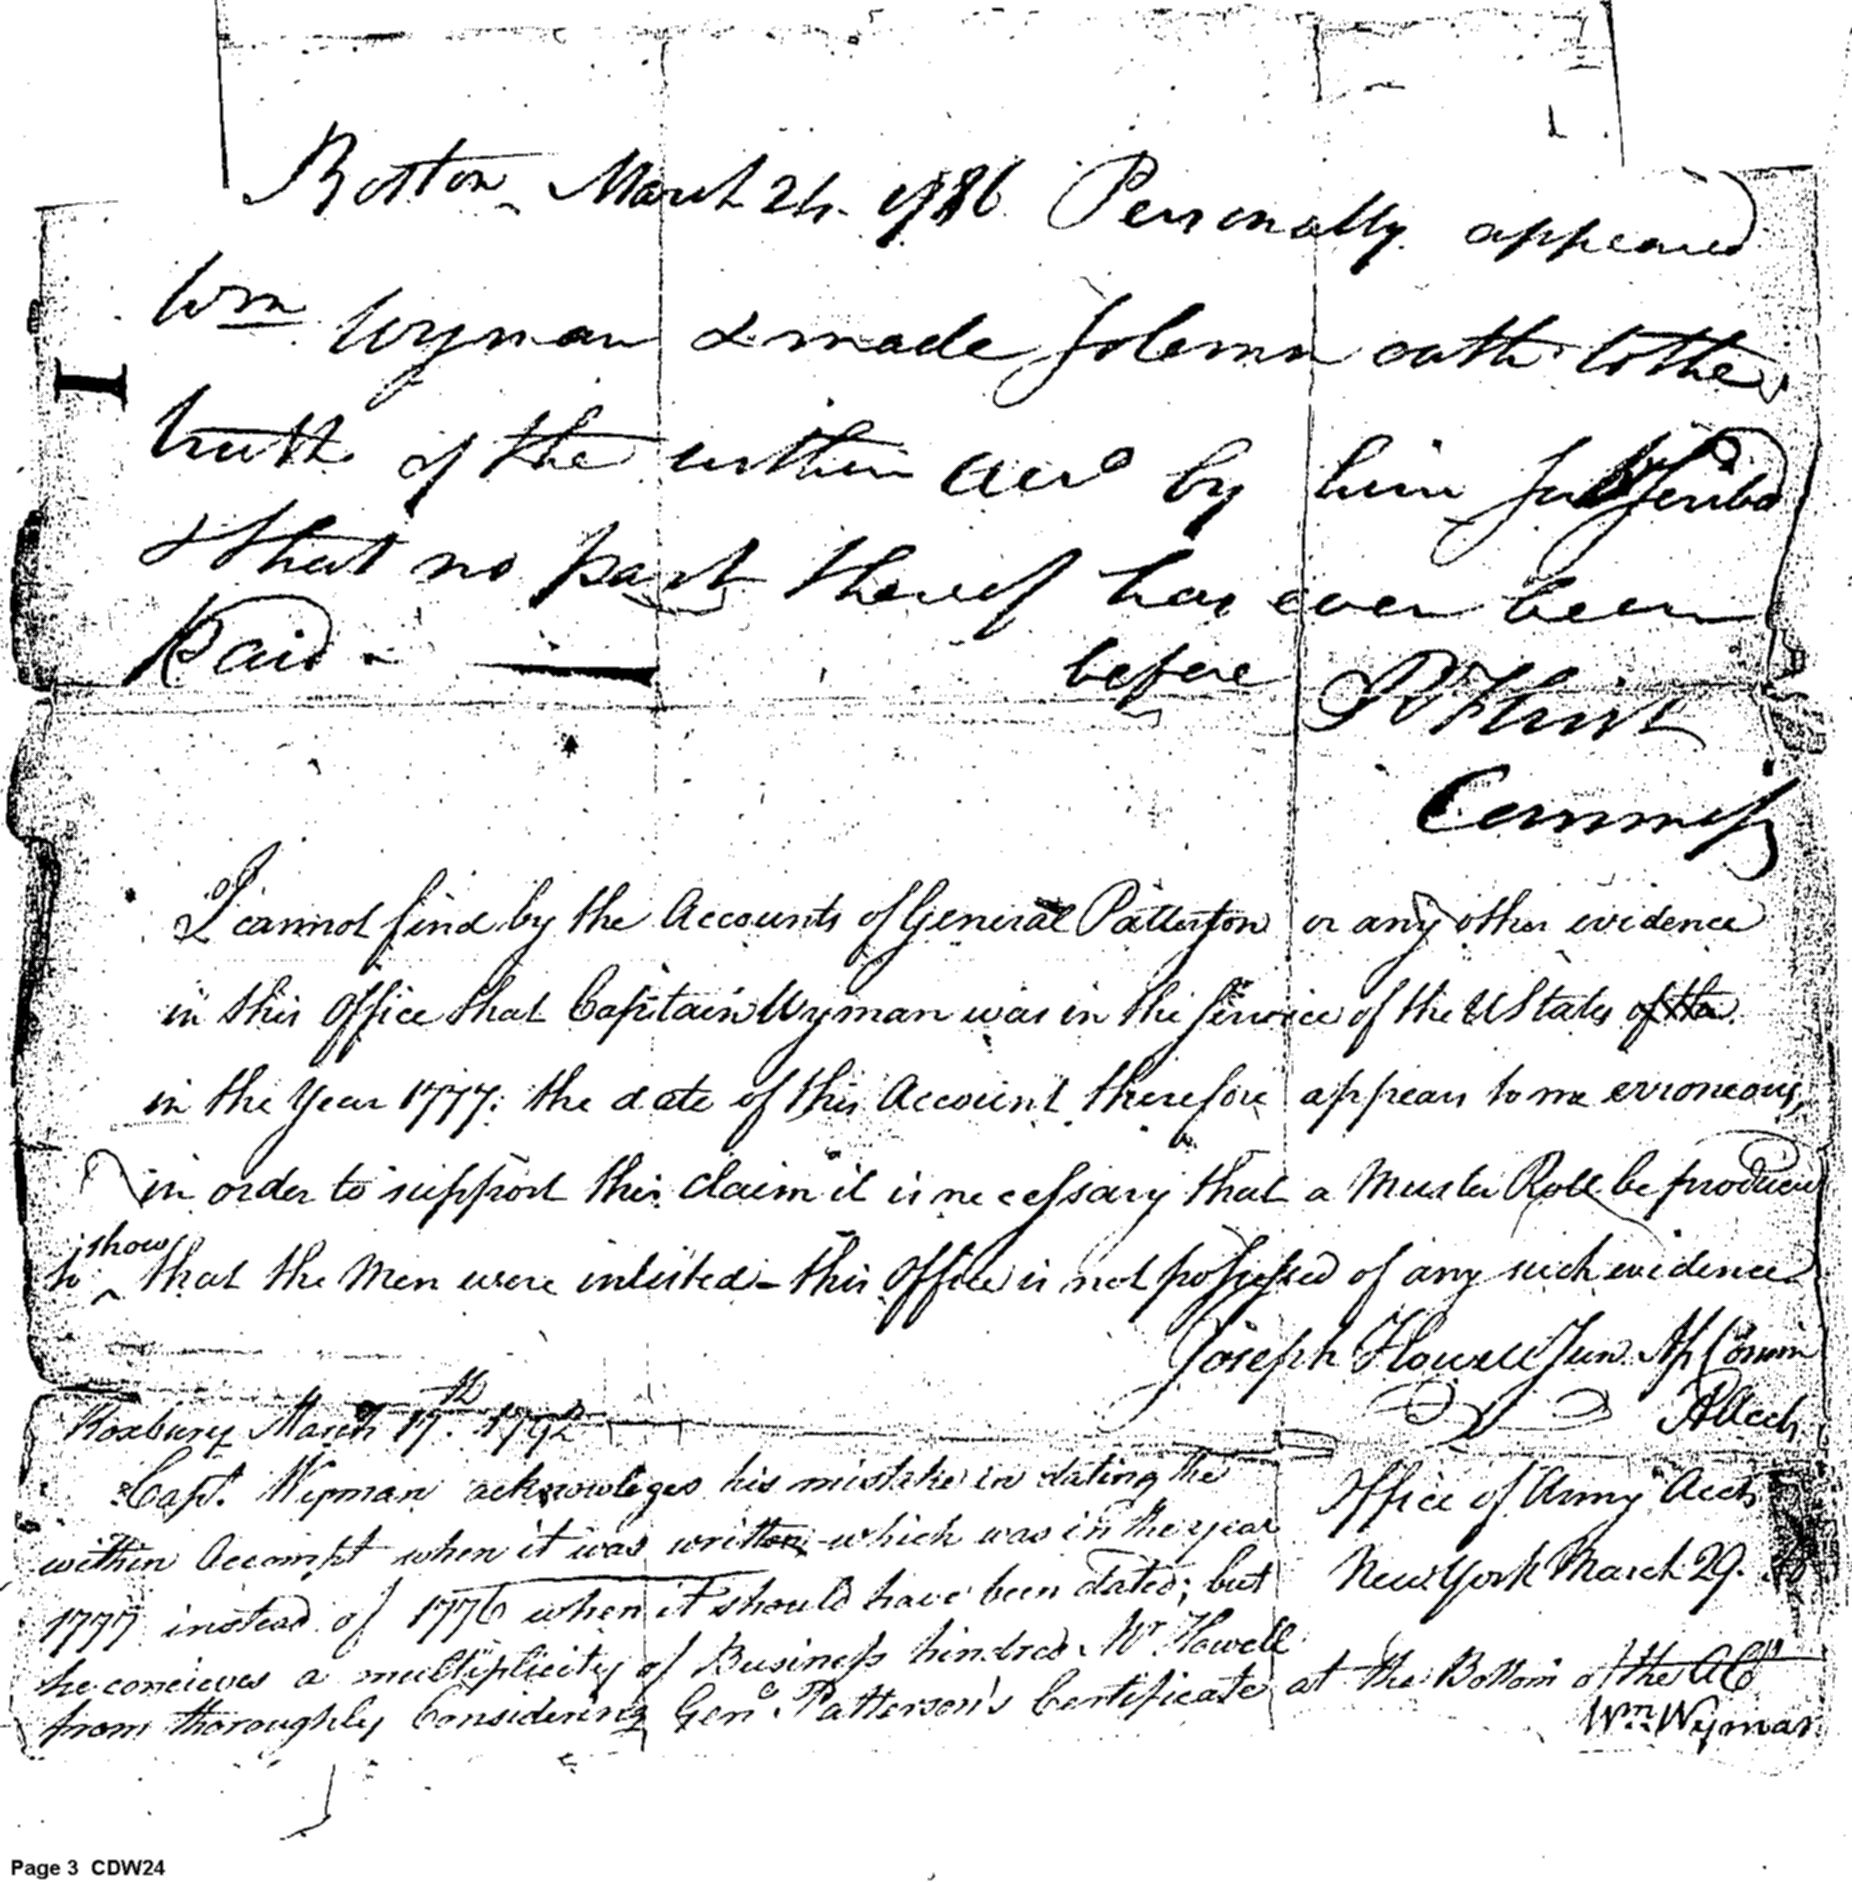 Boston March 24. 1786 Personally appeared
Wm Wyman & made Solemn oath to the
truth of the within Acco by him Subscribd
& that no part thereof has ever been
Paid -
before
Commissr
I cannot find by the Accounts of General Patterson or any other evidence
in this Office that Captain Wyman was in the Service of the U States of the
in the Year 1777: the date of this Account therefore appears to me erroneous,
in order to support this claim it is necessary that a Muster Roll be produced
to show that the Men were inlisted - this Office is not possessed of any such evidence
Joseph Howell Jun. Comm
Office of Army Accts
New York March 29.
Roxbury March 17th 1792
Capt. Wyman acknowleges his mistake in dating the
within Accompt when it was written which was in the year
1777 instead of 1776 when it should have been dated; but
he concieves a multiplicity of Business hindred Mr Howell
from thoroughly Considering Genl Patterson's Certificate at the Bottom of the Act
Wm Wyman
Page 3 CDW24